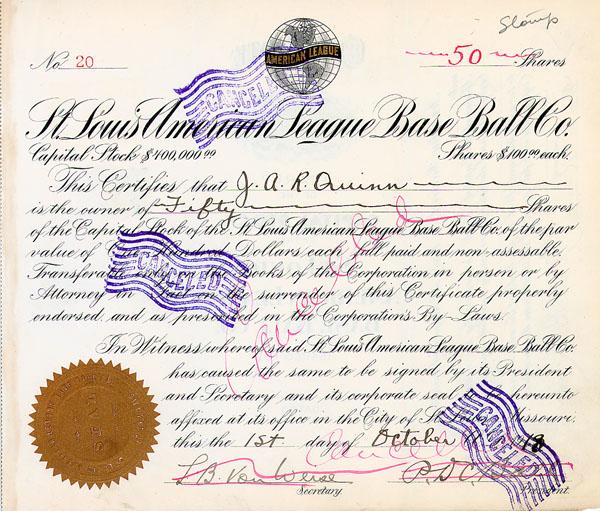 Stamp
AMERICAN LEAGUE
No. 20
50 Shares
CANCELED
St. Louis American League Base Ball Co.
Capital Stock $400,000.00
Shares $100.00 each.
This Certifies that J. A. R. Quinn
is the owner of Fifty Shares
of the Capital Stock of the St. Louis American League Base Ball Co. of the par
value of One Hundred Dollars each full paid and non-assessable.
Transferable only on the Books of the Corporation in person or by
CANCELED
Attorney on the surrender of this Certificate properly
endorsed, and as prescribed in the Corporation's By-Laws.
Cancelled
In Witness whereof said, St. Louis American League Base Ball Co.
has caused the same to be signed by its President
and Secretary and its corporate seal hereunto
affixed at its office in the City of St. Louis Missouri.
CANCELED
this the 1st day of October 1918
Secretary
President